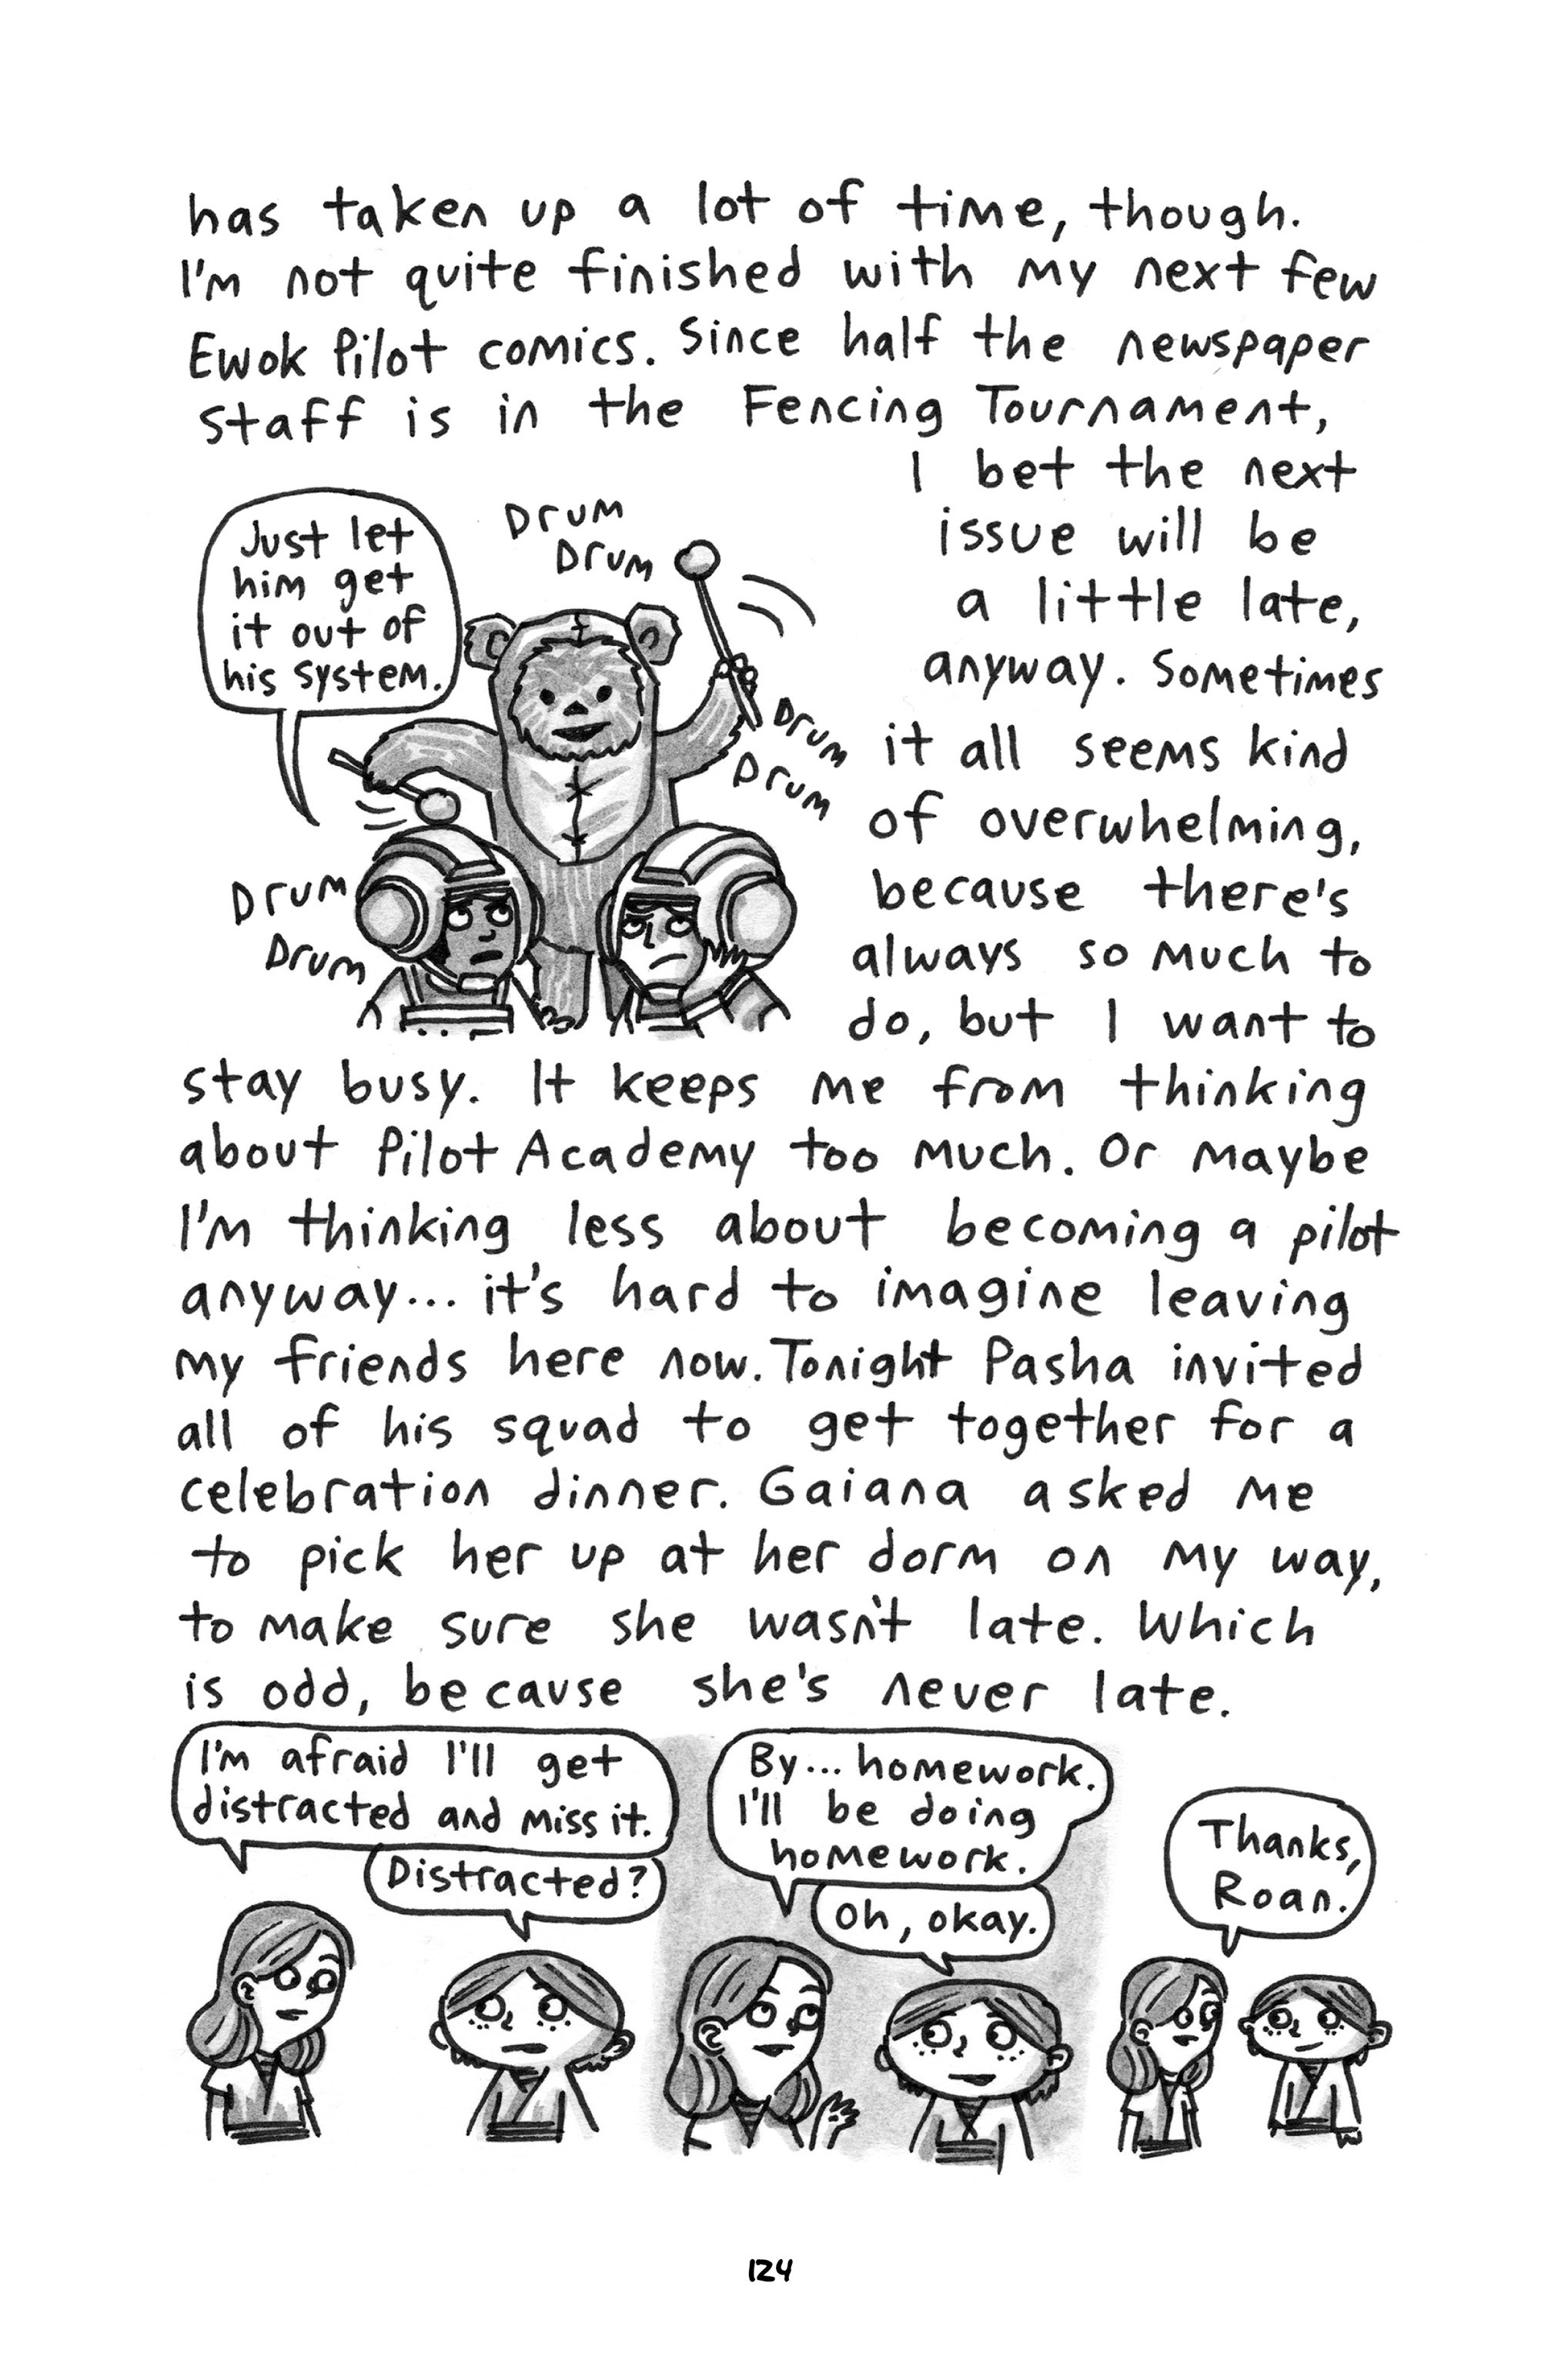 has taken up a lot of time, though.
I'm not quite finished with my next few
Ewok Pilot comics. Since half the newspaper
staff is in the Fencing Tournament,
I bet the next
issue will be
a little late,
anyway. Sometimes
it all seems kind
of overwhelming,
because there's
always so much to
do, but I want to
Just let
him get
it out of
his system.
Drum
Drum
Drum
Drum
Drum
Drum
stay busy. It keeps me from thinking
about Pilot Academy too much. Or maybe
I'm thinking less about becoming a pilot
anyway... it's hard to imagine leaving
my friends here now. Tonight Pasha invited
all of his squad to get together for a
celebration dinner. Gaiana asked me
to pick her up at her dorm on my way,
to make sure she wasn't late. Which
is odd, because she's never late.
I'm afraid I'll get
distracted and miss it.
Distracted?
By... homework.
I'll be doing
homework.
Oh, okay.
Thanks,
Roan.
124